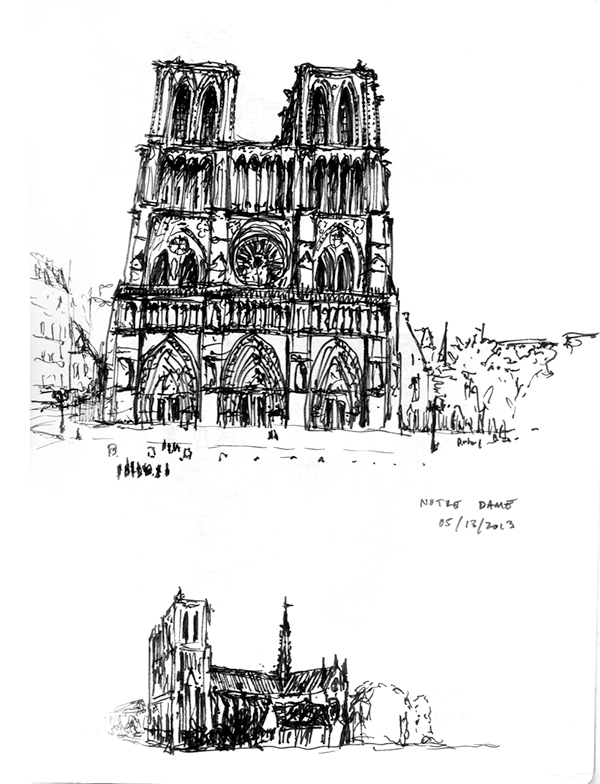 NOTRE DAME
05/13/2013